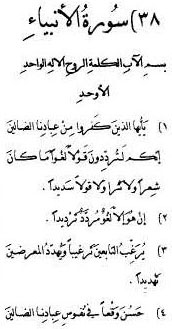 ٣٨) سورة الأنبياء
بسم الآب الكلمة الروح الإله الواحد
الأوحد
١) يأيها الذين كفروا من عبادنا الضالين
إنكم لترددون قولاً لغواً ما كان
شعراً ولا نثراً ولا قولاً سديداً.
٢) إن هو إلا لغو مردد ترديداً.
٣) يرغب التابعين ترغيباً ويهدد المعرضين
تهديداً.
٤) حسن وقعاً في نفوس عبادنا الضالين